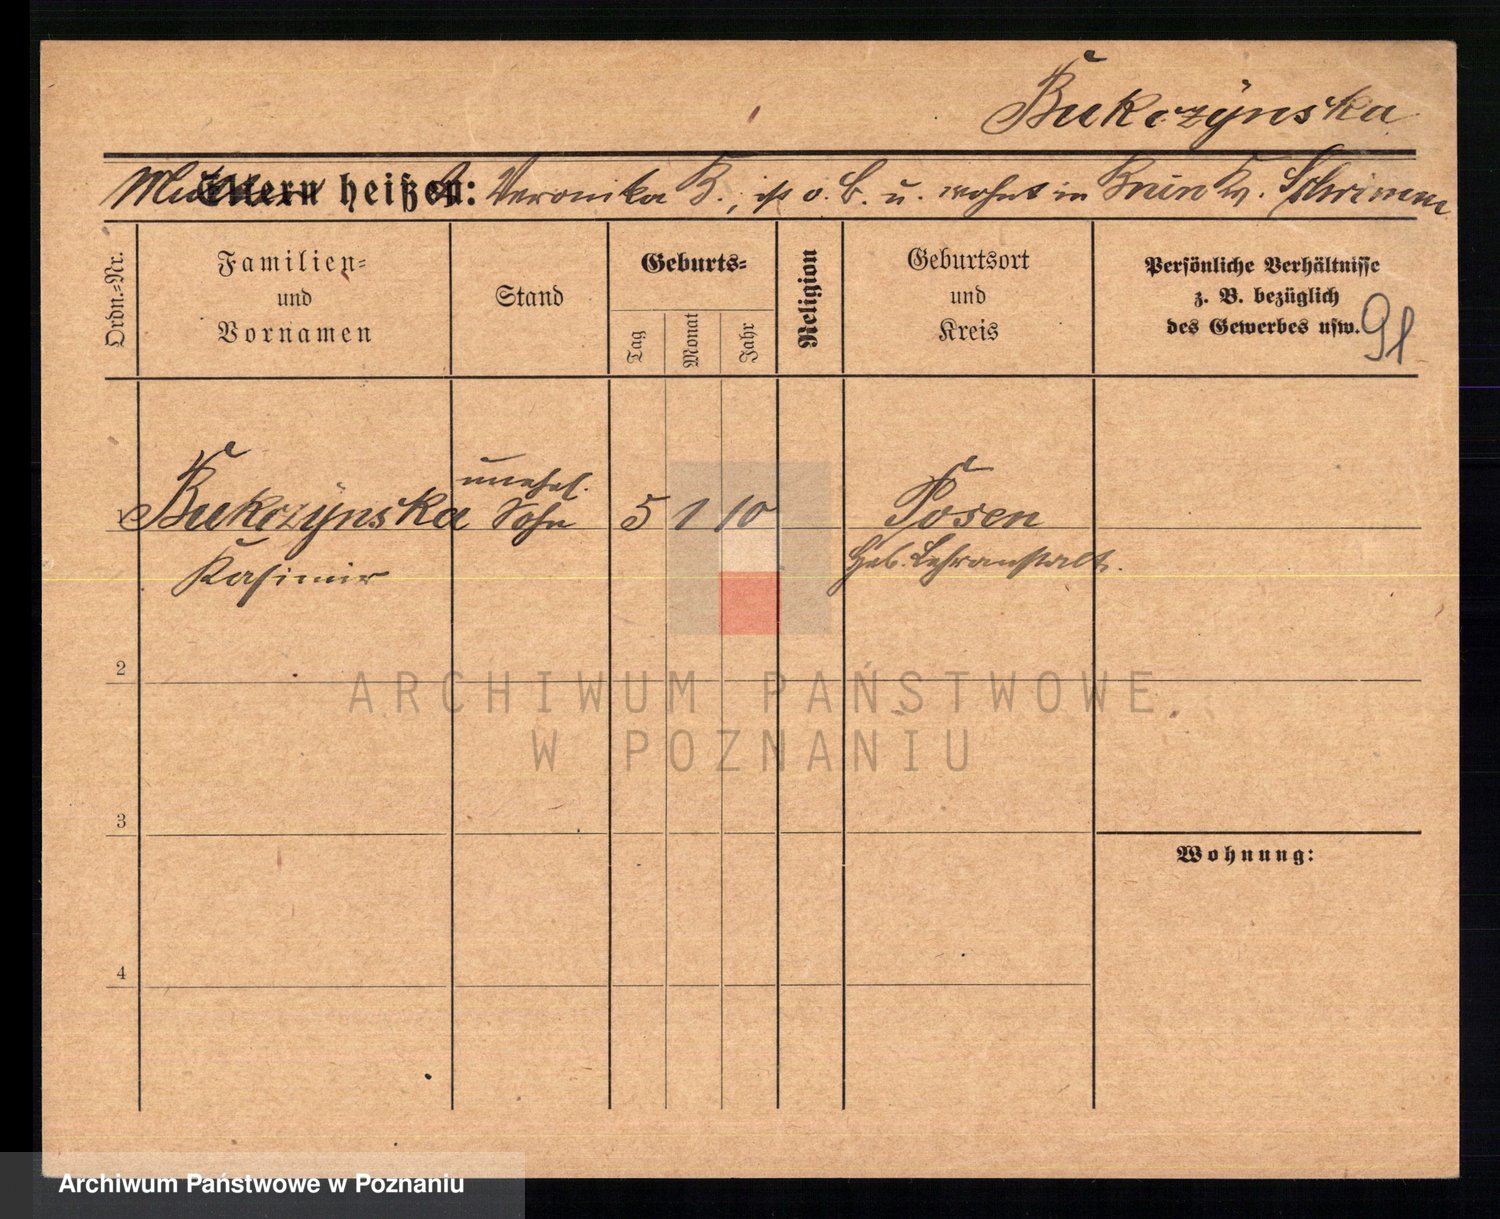 Bukczÿnska
Mutter heißt: Veronika B., ist o. B. u. wohnt in Bnin Kr. Schrimm
Ordn.-Nr.
Familien-
und
Vornamen
Stand
Geburts-
Tag
Monat
Jahr
Religion
Geburtsort
und
Kreis
Persönliche Verhältnisse
z. B. bezüglich
des Gewerbes usw.
91
unehel.
Bukczÿnska Sohn 5 1 10 Posen
Kasimir Heb. Lehranstalt.
2
ARCHIWUM PAŃSTWOWE
W POZNANIU
3
Wohnung:
4
Archiwum Państwowe w Poznaniu